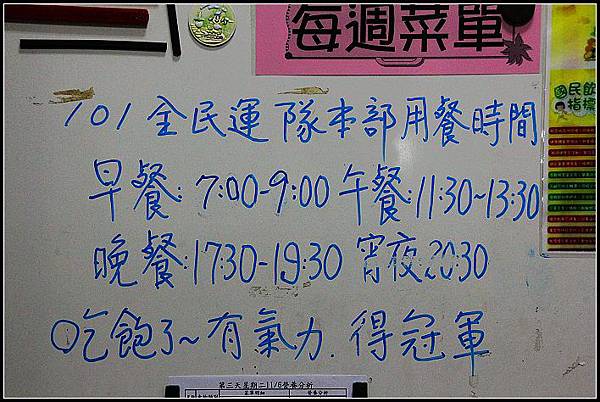 每週菜單
國民飲
指標
101全民運 隊本部用餐時間
早餐:7:00-9:00 午餐:11:30~13:30
晚餐:17:30-19:30 宵夜:20:30
吃飽了~有氣力.得冠軍
第三天星期二11/6營養分析
營養分析